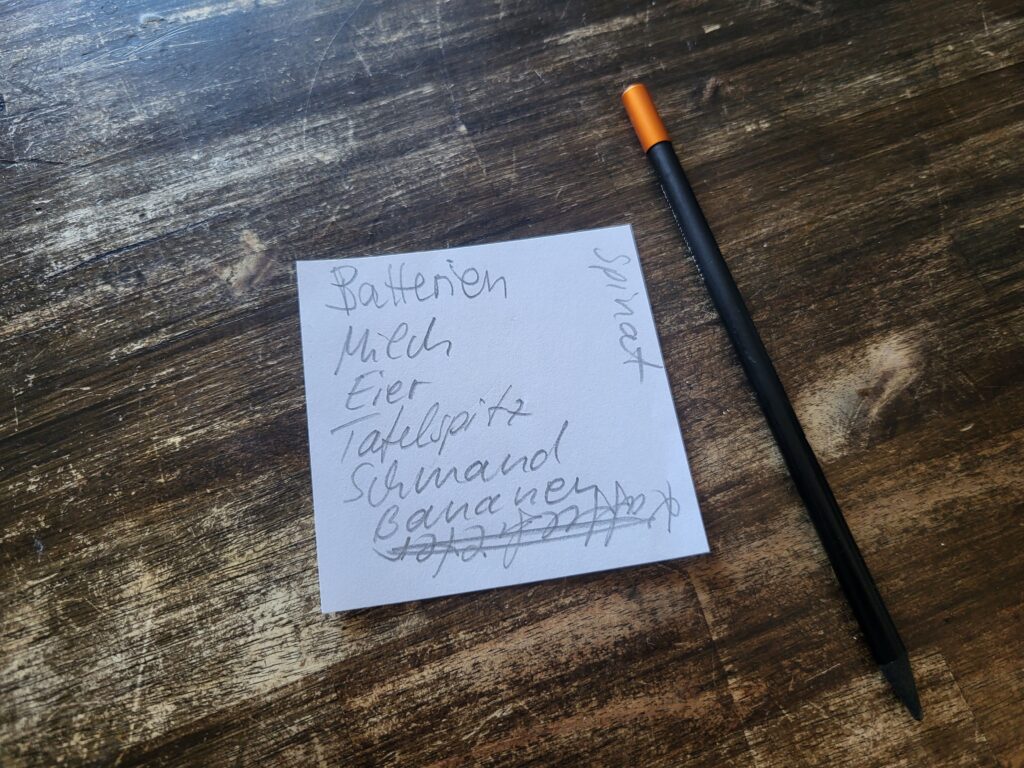 Batterien
Milch
Eier
Tafelspitz
Schmand
Bananen
Kaffeefilter
Spinat